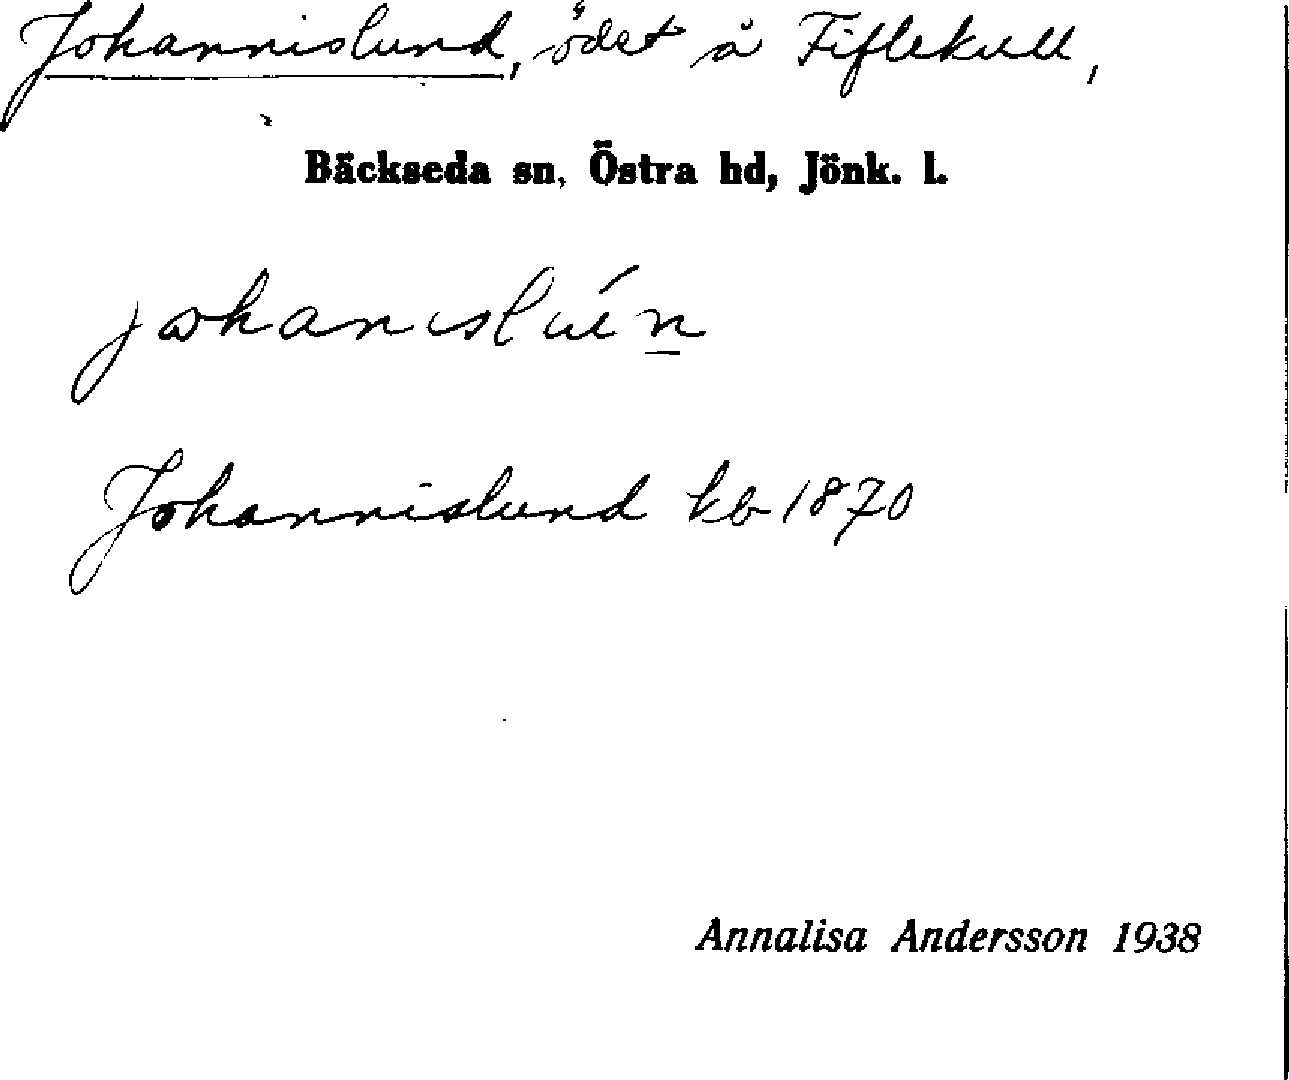 Johannislund, ödet å Fiflekull,
Bäckseda sn, Östra hd, Jönk. l.
johanislún
Johannislund kb 1870
Annalisa Andersson 1938